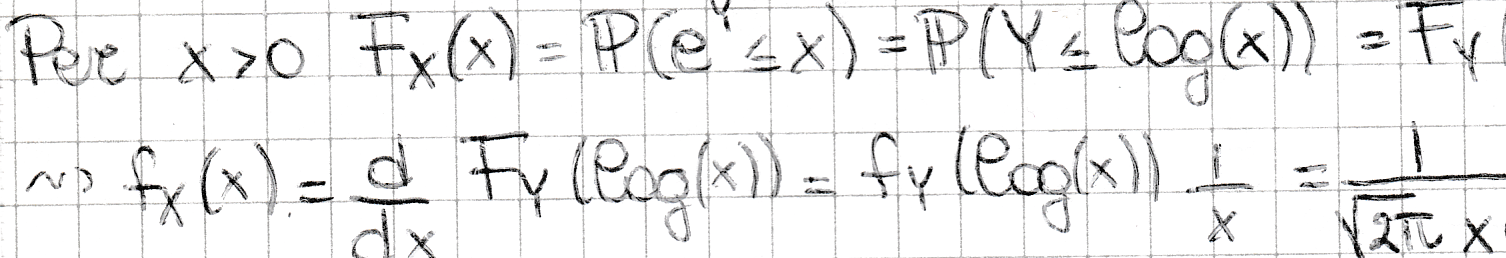 Per x>0 F_X(x) = ℙ(e^Y ≤ x) = ℙ(Y ≤ log(x)) = F_Y(
⇝ f_X(x) = \frac{d}{dx} F_Y(log(x)) = f_Y(log(x)) \frac{1}{x} = \frac{1}{\sqrt{2π} x